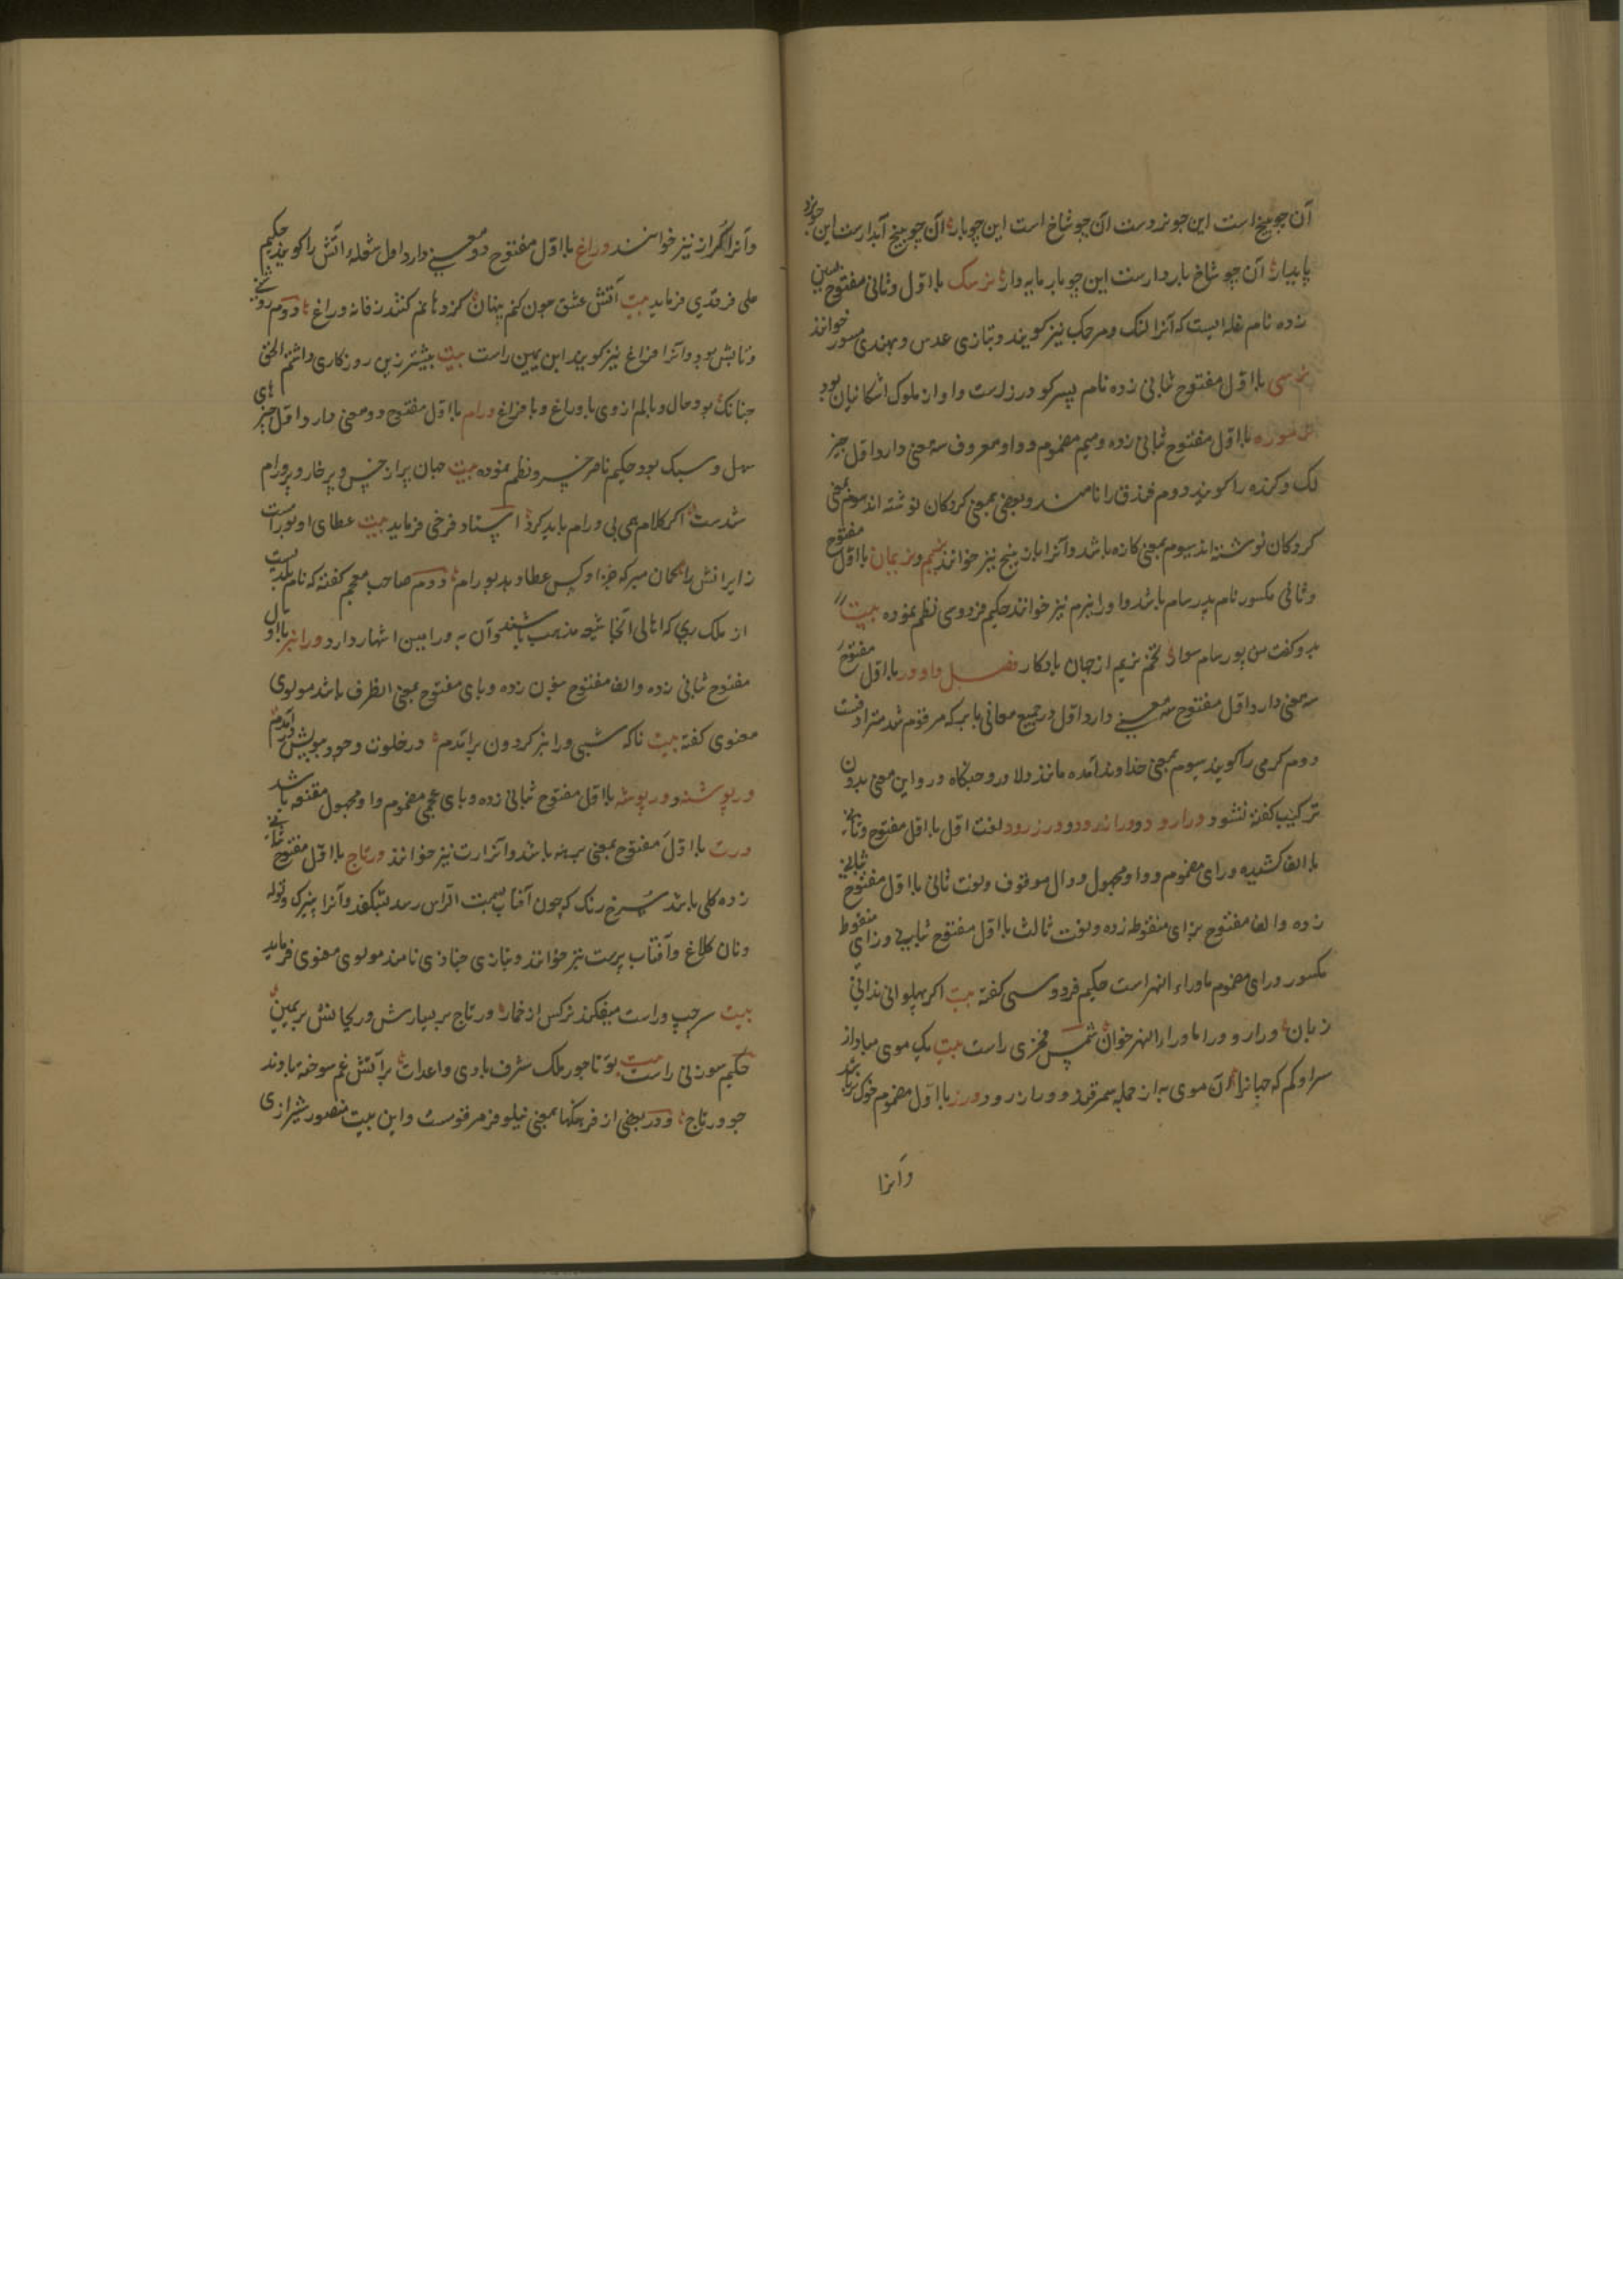 آن چو بیخ است این چو نردست آن چو شاخ است این چو بار آن چو بیخ آبدارست این چو نرد
پایدار آن چو شاخ باردارست این چو بار مایه دار نرسک با اول و ثانی مفتوح بسین
زده نام غله ایست که آنرا لنک و مرجک نیز کویند و بتازی عدس و بهندی مسور خوانند
نرسی با اول مفتوح ثبانی زده نام پسر کودرز است و او از ملوک اشکانیان بود
نرموره با اول مفتوح ثبانی زده و میم مضموم و واو معروف سه معنی دارد اول چیز
لک و کنده را کویند دوم فندق را نامند و بعضی بمعنی کردکان نوشته اند سوم بمعنی
کردکان نوشته اند سیوم بمعنی کازه باشد و آنرا باز پیچ نیز خوانند نریم و نریمان با اول مفتوح
و ثانی مکسور نام پدر سام باشد و او را نیرم نیز خوانند حکیم فردوسی نظم نموده بیت
بدو کفت من پور سام سوار ز تخم نریم از جهان یادکار فصل واو ور با اول مفتوح
سه معنی دارد اول مفتوح سه معنی دارد اول در جمیع معانی با بر که مرقوم شد مترادفست
دوم کرمی را کویند سیوم بمعنی خداوند آمده مانند دلاور و جنکاور و این معنی بدون
ترکیب کفته نشود ورارود و ورازرود و ورزرود لغت اول با اول مفتوح و ثانی
با الف کشیده و رای مضموم و واو مجهول و دال موقوف و لغت ثانی با اول مفتوح ثبانی
زده و الف مفتوح بزای منقوطه زده و لغت ثالث با اول مفتوح ثبانی و زای منقوط
مکسور و رای مضموم ماوراء النهر است حکیم فردوسی کفته بیت اکر پهلوانی ندانی
زبان ورارود را ماوراالنهر خوان شمس فخری راست بیت یک موی مبادا ز
سر او کم که جهانرا آن موی به از جمله سمرقند و ورازرود ورز با اول مضموم خوک نر باشد
وآنرا
وآنرا کراز نیز خوانند وراغ با اول مفتوح دو معنی دارد اول شعله آتش را کویند حکیم
علی فرقدی فرماید بیت آتش عشق چون کنم پنهان کز دهانم کشد زفانه وراغ دوم روشنی
و تابش بود و آنرا فراغ نیز کویند ابن یمین راست بیت بیشتر زین روزکاری داشتم الحق
چنانک بود حال و بالم از وی با وراغ و با فراغ ورام با اول مفتوح دو معنی دارد اول چیز های
سهل و سبک بود حکیم ناصر خسرو نظم نموده بیت جهان پر از خس و پر خار و پر ورام
شدست اکر کلام همی بی ورام باید کرد استاد فرخی فرماید بیت عطای او نه راست
زایرانش را کمان مبر که جز او کس عطا دهد بورام دوم صاحب معجم کفته که نام بلدیست
از ملک ری که اهالی آنجا شیعه مذهب باشند و آن به ورامین اشتهار دارد ورانبر با اول
مفتوح ثبانی زده و الف مفتوح بنون زده و بای مفتوح بمعنی الطرف باشد مولوی
معنوی کفته بیت ناکه شبی ورانبر کردون برآمدم در خلوت وجود بپیش قدم
ورپوشنه و ورپوشه با اول مفتوح ثبانی زده و بای عجمی مضموم و واو مجهول مقنعه باشد
ورت با اول مفتوح بمعنی برهنه باشد و آنرا رت نیز خوانند ورتاج با اول مفتوح ثبانی
زده کلی باشد سرخ رنک که چون آفتاب بسمت الراس رسد بشکفد و آنرا پنیرک و توله
و نان کلاغ و آفتاب پرست نیز خوانند و بتازی خبازی نامند مولوی معنوی فرماید
بیت سر چپ و راست میفکند نرکس از خمار ورتاج بر یسارش و ریحانش بر یمین
حکیم سوزنی راست بیت تو تاجور ملک شرف بادی و اعدات بر آتش غم سوخته باوند
چو ورتاج و در بعضی از فرهنکها بمعنی نیلوفر مرقومست و این بیت منصور شیرازی